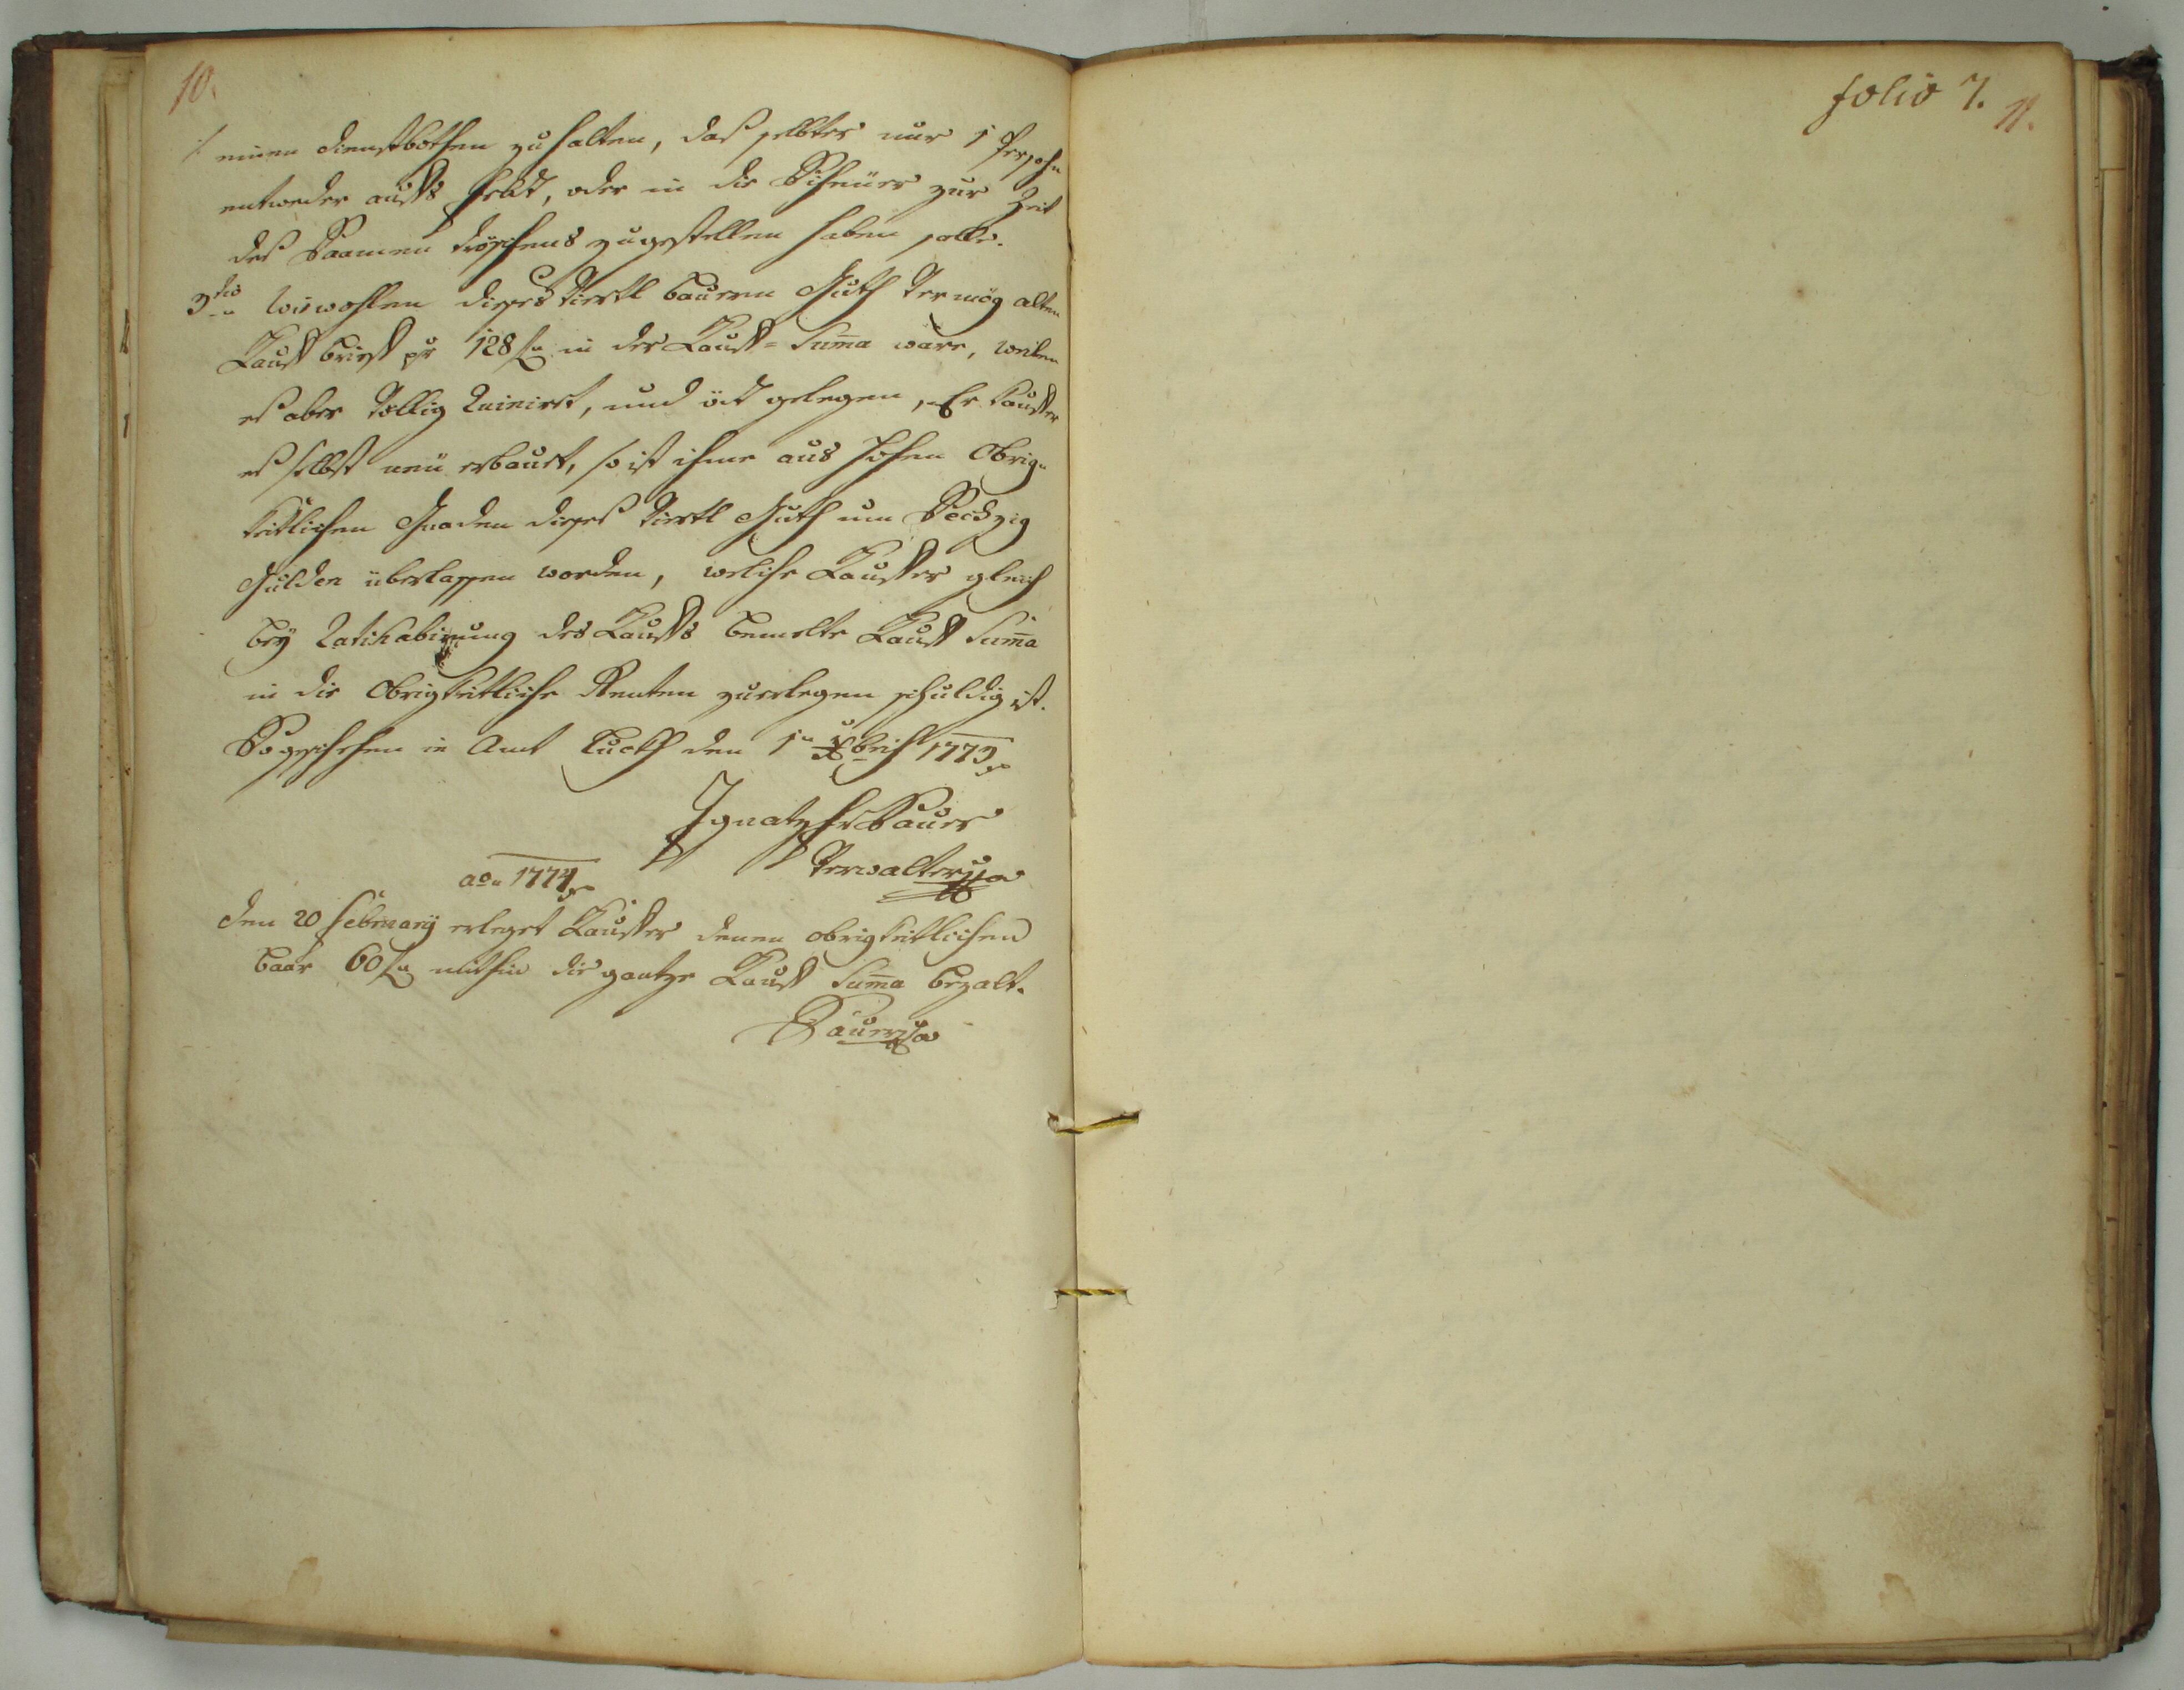 10.
/. einen dienstbothen zu halten, daß selbter nur 1 Persohn
entweder aufs feld, oder in die Scheüer zur Zeit
des Saamen dröschens zugestellen haben solle.
3tio Wiewohlen dieses Viertl bauern Guth Vermög alten
Kauff brieff pr 128 f in der Kauff=Suma wäre, weilen
es aber Völlig Ruinirt, und öed gelegen, Er Kauffer
es selbst neü erbauet, so ist ihme aus Hohen Obrig-
keitlichen Gnaden dieses Viertl Guth um Sechzig
Gulden überlassen worden, welche Kauffer gleich
bey Ratihabirung des Kauffs bemelte Kauff Suma
in die Obrigkeitliche Renten zuerlegen schuldig ist.
So geschehen in Amt den 1n Xbris 1773
Ignatz Bauer
Verwalter
ao 1774
den 20 februarij erleget Kauffer denen obrigkeitlichen
baar 60 f mithin die gantze Kauff Suma bezalt.
Bauer
folio 7. 11.